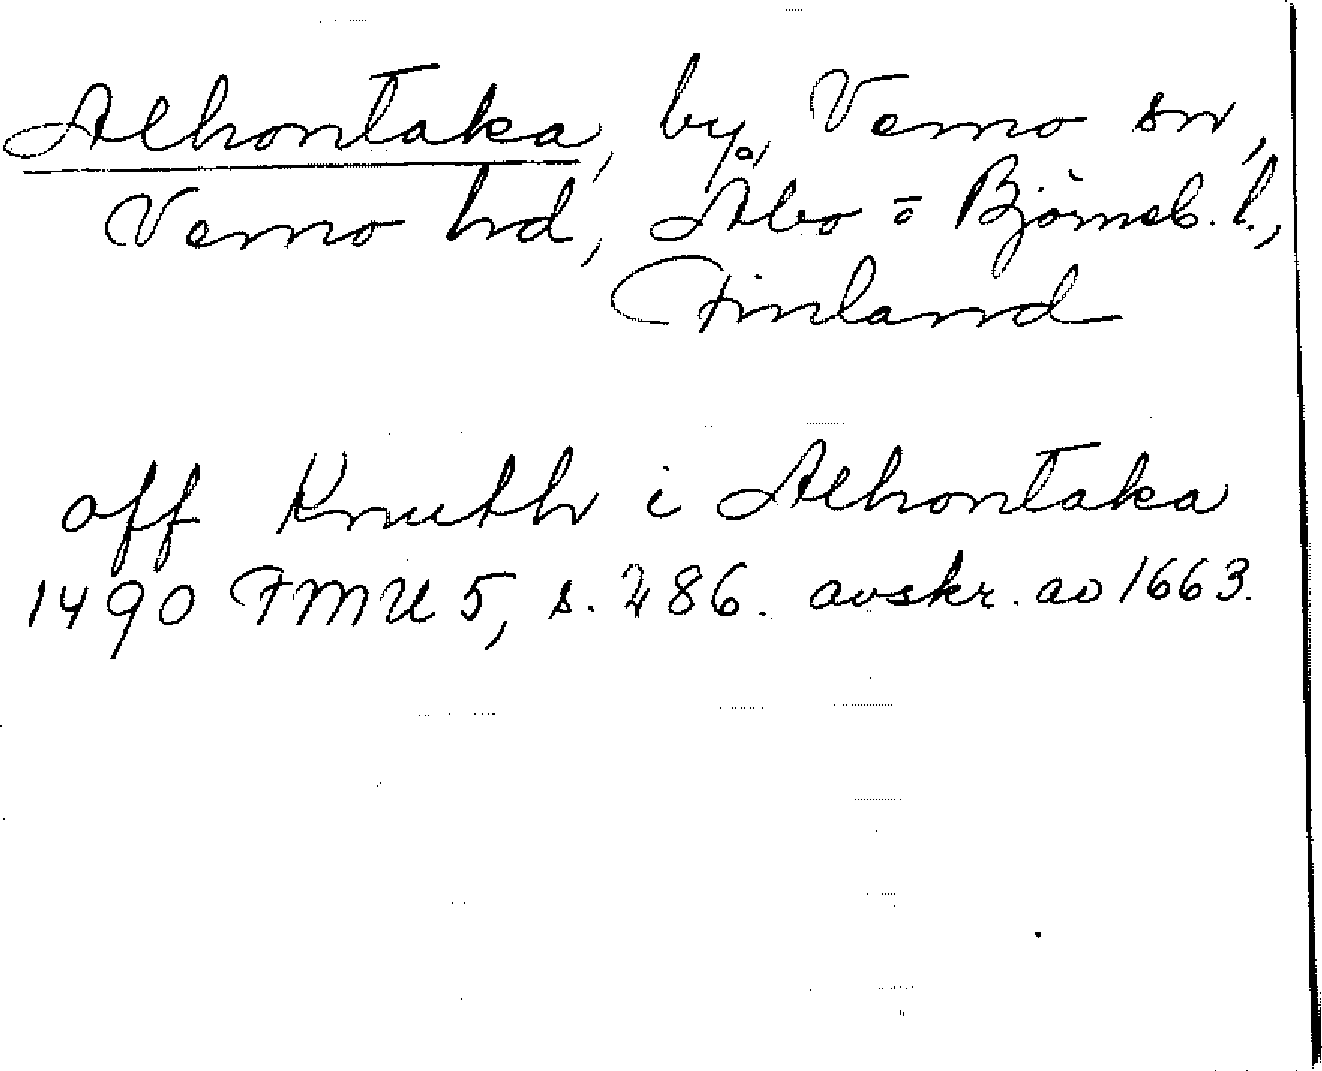 Alhontaka, by, Vemo sn,
Vemo hd, Åbo o Björneb. l.,
Finland
off Knuth i Alhontaka
1490 FMU 5, s. 286. avskr. av 1663.